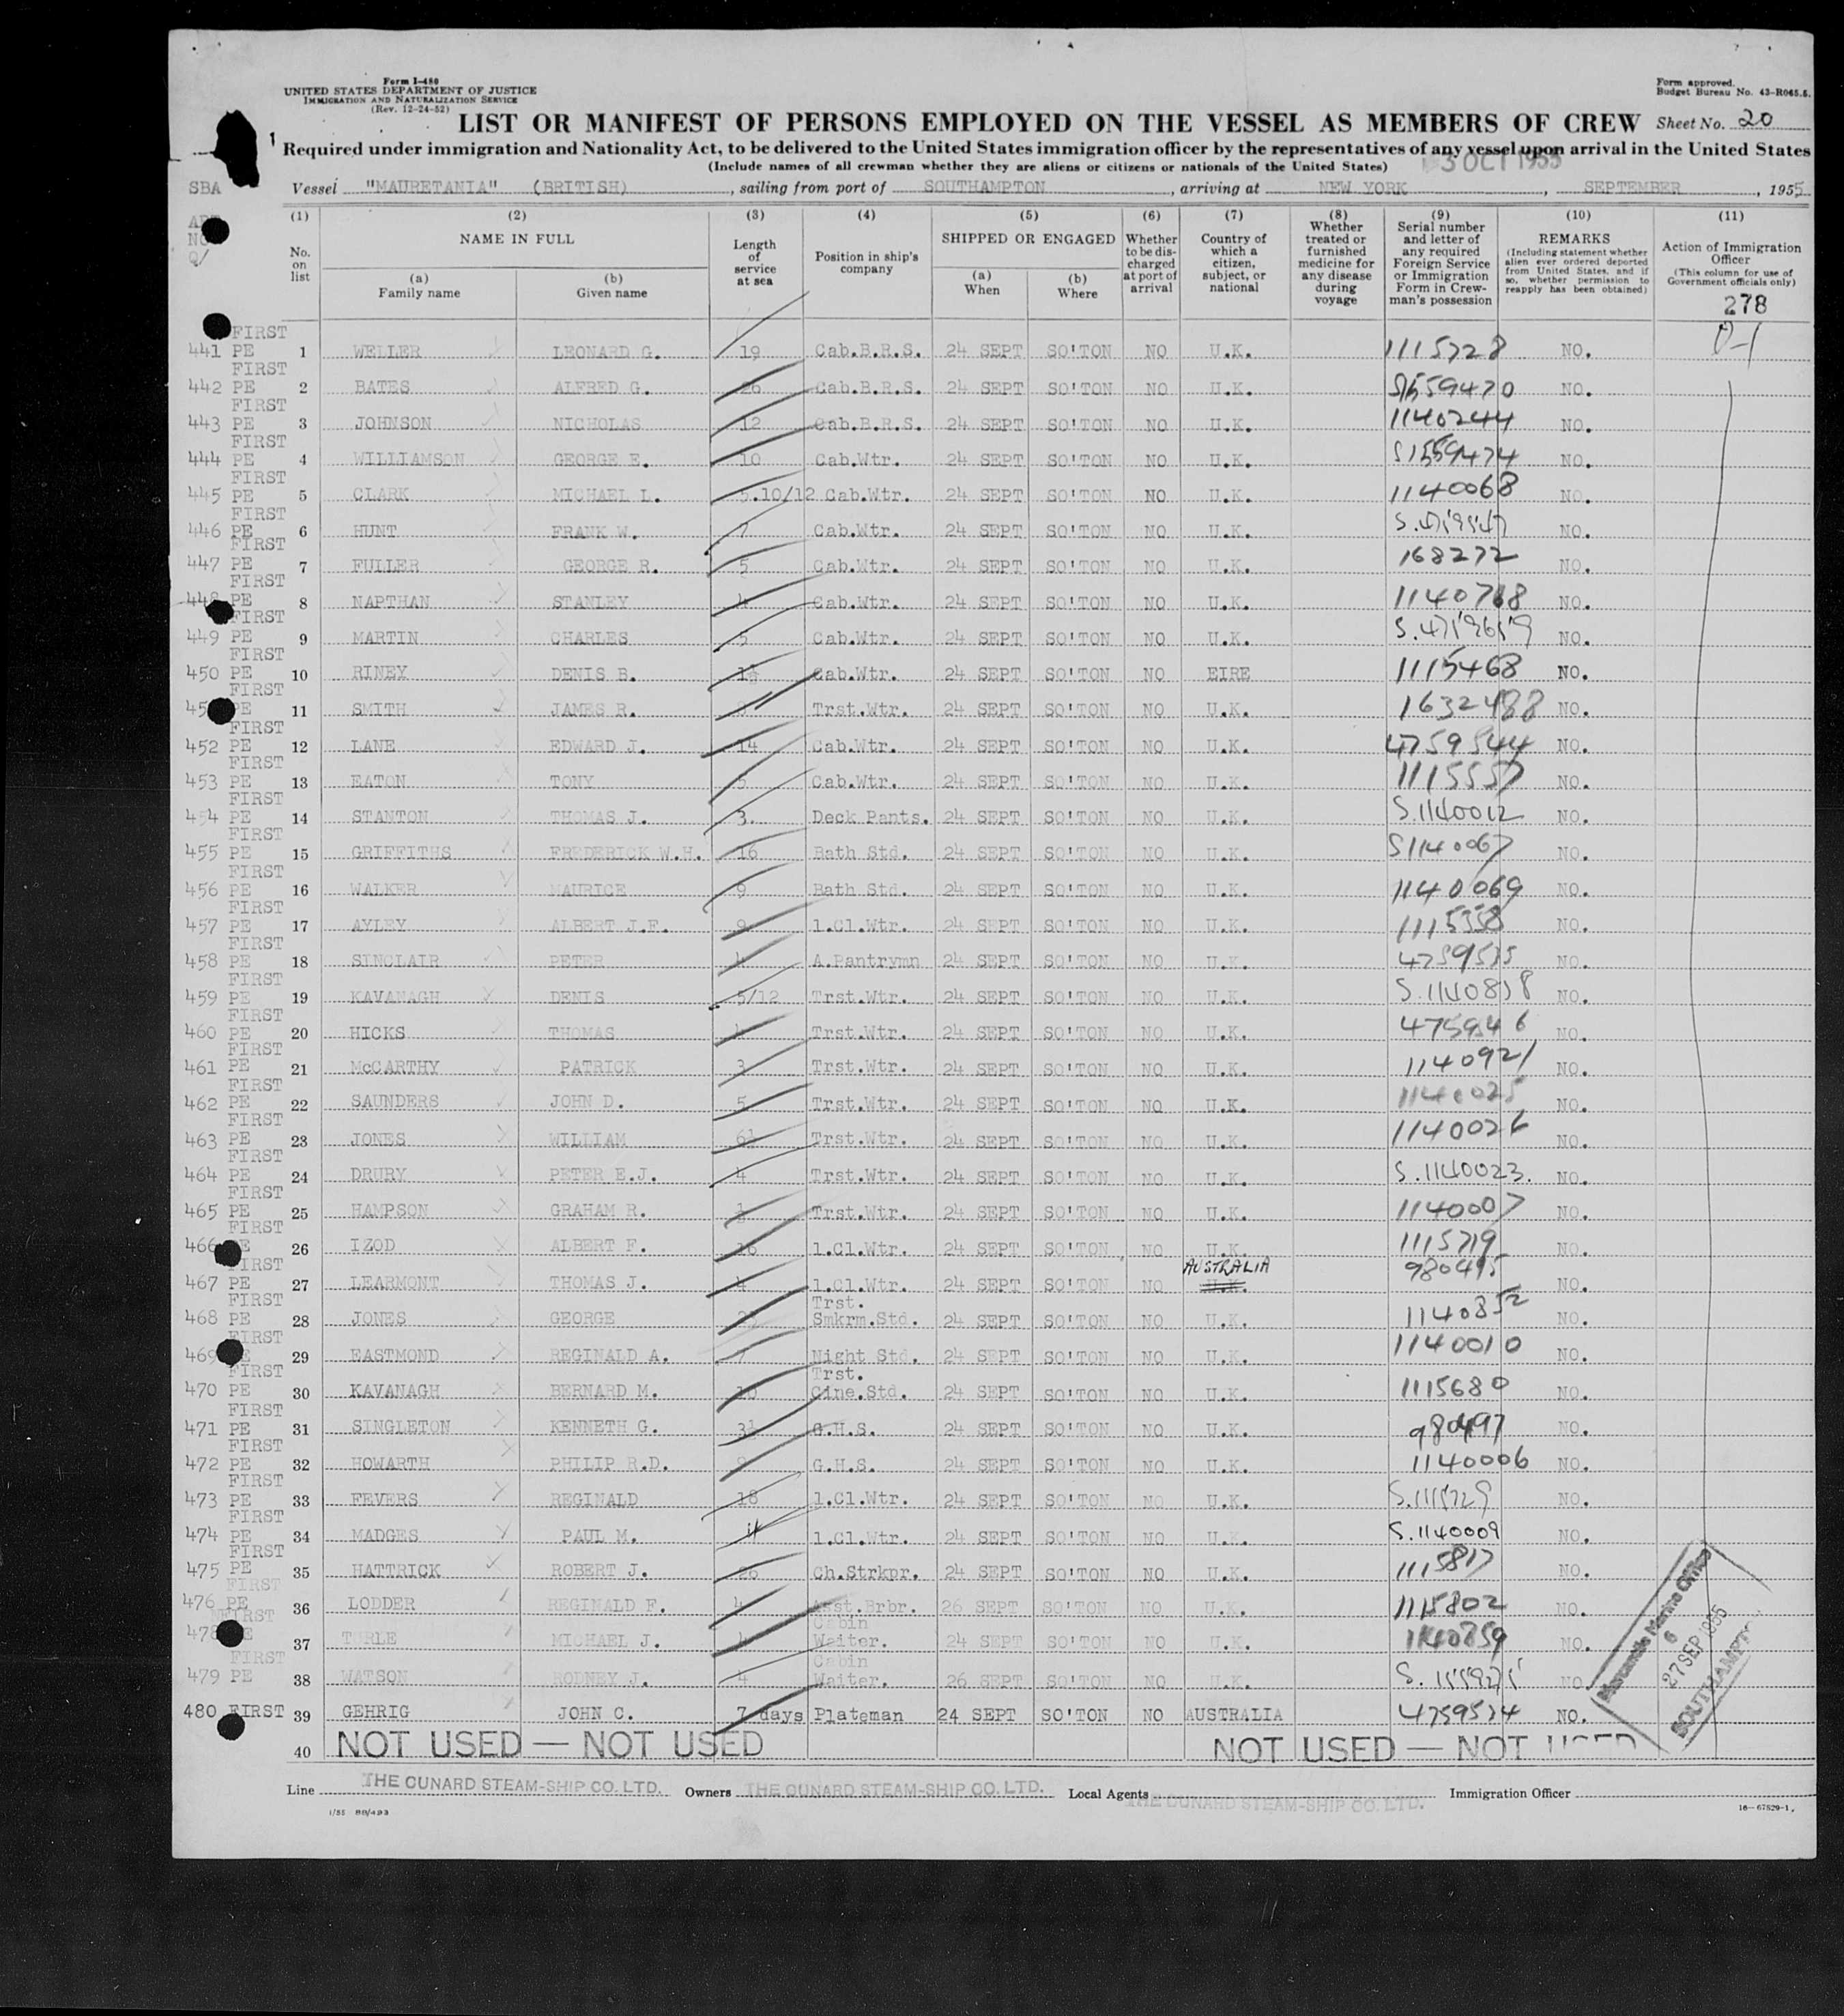 Form I-480
UNITED STATES DEPARTMENT OF JUSTICE
IMMIGRATION AND NATURALIZATION SERVICE
(Rev. 12-24-52)
Form approved.
Budget Bureau No. 43-R065.5.
LIST OR MANIFEST OF PERSONS EMPLOYED ON THE VESSEL AS MEMBERS OF CREW Sheet No. 20
Required under immigration and Nationality Act, to be delivered to the United States immigration officer by the representatives of any vessel upon arrival in the United States
(Include names of all crewman whether they are aliens or citizens or nationals of the United States)
3 OCT 1955
SBA Vessel "MAURETANIA" (BRITISH), sailing from port of SOUTHAMPTON, arriving at NEW YORK, SEPTEMBER, 1955
(1) No. on list
(2) NAME IN FULL
(a) Family name
(b) Given name
(3) Length of service at sea
(4) Position in ship's company
(5) SHIPPED OR ENGAGED
(a) When
(b) Where
(6) Whether to be discharged at port of arrival
(7) Country of which a citizen, subject, or national
(8) Whether treated or furnished medicine for any disease during voyage
(9) Serial number and letter of any required Foreign Service or Immigration Form in Crewman's possession
(10) REMARKS
(Including statement whether alien ever ordered deported from United States, and if so, whether permission to reapply has been obtained)
(11) Action of Immigration Officer
(This column for use of Government officials only)
278
FIRST
441 PE 1 WELLER LEONARD G. 19 Cab.B.R.S. 24 SEPT SO'TON NO U.K. 1115728 NO.
FIRST
442 PE 2 BATES ALFRED G. 26 Cab.B.R.S. 24 SEPT SO'TON NO U.K. NO.
FIRST
443 PE 3 JOHNSON NICHOLAS 12 Cab.B.R.S. 24 SEPT SO'TON NO U.K. 1140244 NO.
FIRST
444 PE 4 WILLIAMSON GEORGE E. 10 Cab.Wtr. 24 SEPT SO'TON NO U.K. S1559474 NO.
FIRST
445 PE 5 CLARK MICHAEL L. 5.10/12 Cab.Wtr. 24 SEPT SO'TON NO U.K. 1140068 NO.
FIRST
446 PE 6 HUNT FRANK W. 7 Cab.Wtr. 24 SEPT SO'TON NO U.K. NO.
FIRST
447 PE 7 FULLER GEORGE R. 5 Cab.Wtr. 24 SEPT SO'TON NO U.K. 168272 NO.
FIRST
448 PE 8 NAPTHAN STANLEY 4 Cab.Wtr. 24 SEPT SO'TON NO U.K. NO.
FIRST
449 PE 9 MARTIN CHARLES 5 Cab.Wtr. 24 SEPT SO'TON NO U.K. NO.
FIRST
450 PE 10 RINEY DENIS B. 1½ Cab.Wtr. 24 SEPT SO'TON NO EIRE 1115468 NO.
FIRST
PE 11 SMITH JAMES R. Trst.Wtr. 24 SEPT SO'TON NO U.K. 1632488 NO.
FIRST
452 PE 12 LANE EDWARD J. 14 Cab.Wtr. 24 SEPT SO'TON NO U.K. 4759544 NO.
FIRST
453 PE 13 EATON TONY 5 Cab.Wtr. 24 SEPT SO'TON NO U.K. 1115557 NO.
FIRST
454 PE 14 STANTON THOMAS J. 3. Deck Pants. 24 SEPT SO'TON NO U.K. S.1140012 NO.
FIRST
455 PE 15 GRIFFITHS FREDERICK W.H. 16 Bath Std. 24 SEPT SO'TON NO U.K. S1140067 NO.
FIRST
456 PE 16 WALKER MAURICE 9 Bath Std. 24 SEPT SO'TON NO U.K. 1140069 NO.
FIRST
457 PE 17 AYLEY ALBERT J.F. 9 1.Cl.Wtr. 24 SEPT SO'TON NO U.K. 1115558 NO.
FIRST
458 PE 18 SINCLAIR PETER 4 A.Pantrymn 24 SEPT SO'TON NO U.K. NO.
FIRST
459 PE 19 KAVANAGH DENIS 5/12 Trst.Wtr. 24 SEPT SO'TON NO U.K. NO.
FIRST
460 PE 20 HICKS THOMAS Trst.Wtr. 24 SEPT SO'TON NO U.K. NO.
FIRST
461 PE 21 McCARTHY PATRICK 3 Trst.Wtr. 24 SEPT SO'TON NO U.K. 1140921 NO.
FIRST
462 PE 22 SAUNDERS JOHN D. 5 Trst.Wtr. 24 SEPT SO'TON NO U.K. 1140025 NO.
FIRST
463 PE 23 JONES WILLIAM 6½ Trst.Wtr. 24 SEPT SO'TON NO U.K. 1140026 NO.
FIRST
464 PE 24 DRURY PETER E.J. 4 Trst.Wtr. 24 SEPT SO'TON NO U.K. S.1140023. NO.
FIRST
465 PE 25 HAMPSON GRAHAM R. ½ Trst.Wtr. 24 SEPT SO'TON NO U.K. 1140007 NO.
FIRST
466 26 IZOD ALBERT F. 16 1.Cl.Wtr. 24 SEPT SO'TON NO U.K. 1115719 NO.
FIRST AUSTRALIA
467 PE 27 LEARMONT THOMAS J. 4 1.Cl.Wtr. 24 SEPT SO'TON NO U.K. 980495 NO.
FIRST Trst.
468 PE 28 JONES GEORGE Smkrm.Std. 24 SEPT SO'TON NO U.K. 1140852 NO.
FIRST
469 29 EASTMOND REGINALD A. 7 Night Std. 24 SEPT SO'TON NO U.K. 1140010 NO.
FIRST Trst.
470 PE 30 KAVANAGH BERNARD M. 10 Cine.Std. 24 SEPT SO'TON NO U.K. 1115680 NO.
FIRST
471 PE 31 SINGLETON KENNETH G. 3½ G.H.S. 24 SEPT SO'TON NO U.K. 980497 NO.
FIRST
472 PE 32 HOWARTH PHILIP R.D. 9 G.H.S. 24 SEPT SO'TON NO U.K. 1140006 NO.
FIRST
473 PE 33 FEVERS REGINALD 18 1.Cl.Wtr. 24 SEPT SO'TON NO U.K. S.1115729 NO.
FIRST
474 PE 34 MADGES PAUL M. 4 1.Cl.Wtr. 24 SEPT SO'TON NO U.K. S.1140009 NO.
FIRST
475 PE 35 HATTRICK ROBERT J. 26 Ch.Strkpr. 24 SEPT SO'TON NO U.K. 1115817 NO.
FIRST
476 PE 36 LODDER REGINALD F. 4 Asst.Brbr. 26 SEPT SO'TON NO U.K. 1115802 NO.
FIRST Cabin
478 37 TURLE MICHAEL J. 4 Waiter. 24 SEPT SO'TON NO U.K. 1140859 NO.
FIRST Cabin
479 PE 38 WATSON RODNEY J. 4 Waiter. 26 SEPT SO'TON NO U.K. NO.
480 FIRST 39 GEHRIG JOHN C. 7 days Plateman 24 SEPT SO'TON NO AUSTRALIA 4759524 NO.
40 NOT USED — NOT USED NOT USED — NOT USED
Mercantile Marine Office
6
27 SEP 1955
SOUTHAMPTON
Line THE CUNARD STEAM-SHIP CO. LTD. Owners THE CUNARD STEAM-SHIP CO. LTD. Local Agents THE CUNARD STEAM-SHIP CO. LTD. Immigration Officer
1/55 88/493
16—67829-1